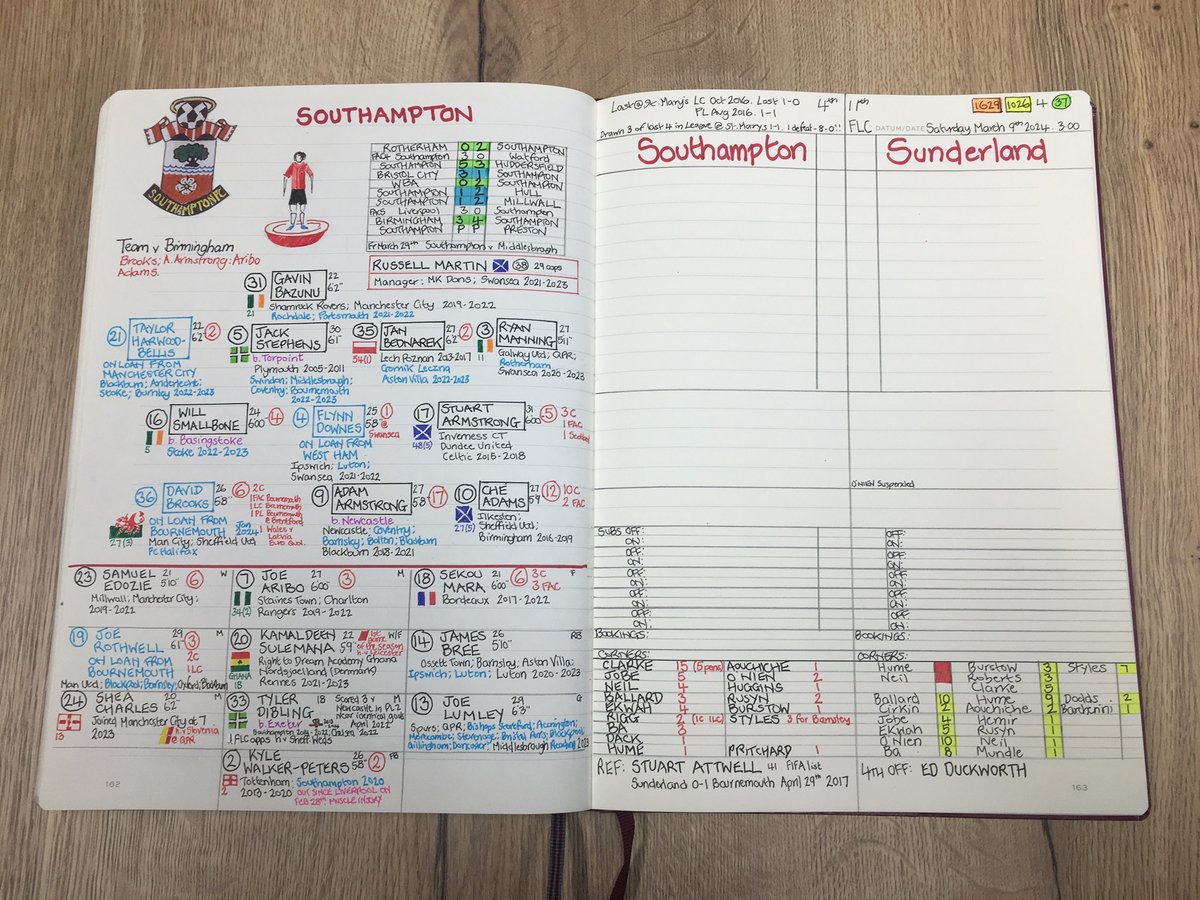 SOUTHAMPTON
SOUTHAMPTON FC
ROTHERHAM 0 2 SOUTHAMPTON
FAC4 Southampton 3 0 Watford
SOUTHAMPTON 5 3 HUDDERSFIELD
BRISTOL CITY 3 1 SOUTHAMPTON
WBA 0 2 SOUTHAMPTON
SOUTHAMPTON 1 2 HULL
SOUTHAMPTON 1 2 MILLWALL
FAC5 Liverpool 3 0 Southampton
BIRMINGHAM 3 4 SOUTHAMPTON
SOUTHAMPTON P P PRESTON
Fr March 29th Southampton v Middlesbrough
Team v Birmingham
Brooks; A. Armstrong: Aribo
Adams.
RUSSELL MARTIN 38 29 caps
Manager: MK Dons; Swansea 2021-2023
31 GAVIN BAZUNU 22 6'2"
21
Shamrock Rovers; Manchester City 2019-2022
Rochdale; Portsmouth 2021-2022
21 TAYLOR HARWOOD-BELLIS 22 6'2" 2
ON LOAN FROM
MANCHESTER CITY
Blackburn; Anderlecht;
Stoke; Burnley 2022-2023
5 JACK STEPHENS 30 6'1"
b. Torpoint
Plymouth 2005-2011
Swindon; Middlesbrough;
Coventry; Bournemouth
2022-2023
35 JAN BEDNAREK 27 6'2" 2
54(1)
Lech Poznan 2013-2017
Gornik Leczna
Aston Villa 2022-2023
3 RYAN MANNING 27 5'11"
11
Galway Utd; QPR;
Rotherham
Swansea 2020-2023
16 WILL SMALLBONE 24 6'00" 4
5
b. Basingstoke
Stoke 2022-2023
4 FLYNN DOWNES 25 5'8 1 @ Swansea
ON LOAN FROM
WEST HAM
Ipswich; Luton;
Swansea 2021-2022
17 STUART ARMSTRONG 31 6'00" 5 3C
1 FAC
1 Scotland
48(5)
Inverness CT
Dundee United
Celtic 2015-2018
36 DAVID BROOKS 26 5'8" 6
2C
1 FAC Bournemouth
1 LC Bournemouth
1 PL Bournemouth
v Brentford
1 Wales v
Latvia
Euro Qual.
27(3)
ON LOAN FROM
BOURNEMOUTH Jan 2024
Man City; Sheffield Utd
FC Halifax
9 ADAM ARMSTRONG 27 5'8" 17
b. Newcastle
Newcastle; Coventry;
Barnsley; Bolton; Blackburn
Blackburn 2018-2021
10 CHE ADAMS 27 5'9" 12 10C
2 FAC
27(5)
Ilkeston;
Sheffield Utd;
Birmingham 2016-2019
23 SAMUEL EDOZIE 21 5'10" 6 W
Millwall; Manchester City;
2019-2022
7 JOE ARIBO 27 6'00" 3 M
34(2)
Staines Town; Charlton
Rangers 2019-2022
18 SEKOU MARA 21 6'00" 6 3C
3 FAC F
Bordeaux 2017-2022
19 JOE ROTHWELL 29 6'1" 3 M
2C
1LC
ON LOAN FROM
BOURNEMOUTH
Man Utd; Blackpool; Barnsley; Oxford; Blackburn
20 KAMALDEEN SULEMANA 22 5'9" W/F
1st game
of the season
v Leicester
GHANA
18
Right to Dream Academy Ghana
Nordsjaelland (Denmark)
Rennes 2021-2023
14 JAMES BREE 26 5'10" RB
Ossett Town; Barnsley; Aston Villa;
Ipswich; Luton; Luton 2020-2023
24 SHEA CHARLES 20 6'2" M
13
Joined Manchester City at 7
2023
h v Slovenia
@ QPR
33 TYLER DIBLING 18 M
Scored 3 v
Newcastle in PL2
near identical goals
April 2022
b. Exeter
1 FLC apps h v Sheff Weds
13 JOE LUMLEY 29 6'3" G
Spurs; QPR; Bishops Stortford; Accrington;
Morecambe; Stevenage; Bristol Rovers; Blackpool;
Gillingham; Doncaster; Middlesbrough Reading 2023
2 KYLE WALKER-PETERS 26 5'8" 2 FB
2
Tottenham: Southampton 2020
2013-2020
OUT SINCE LIVERPOOL ON
FEB 28th MUSCLE INJURY
162
Last @ St. Mary's LC Oct 2016. Lost 1-0
PL Aug 2016. 1-1
Drawn 3 of last 4 in League @ St. Marys 1-1. 1 defeat - 8-0!!
4th
11th
1629 1026 4 37
FLC DATUM/DATE Saturday March 9th 2024. 3:00
Southampton
Sunderland
O'NIEN Suspended
SUBS OFF: OFF:
ON: ON:
OFF: OFF:
ON: ON:
OFF: OFF:
ON: ON:
OFF: OFF:
ON: ON:
OFF: OFF:
ON: ON:
BOOKINGS: BOOKINGS:
CORNERS: CORNERS:
CLARKE 15 (5 pens) AOUCHICHE 1
JOBE 5 O'NIEN 2
NEIL 4 HUGGINS 1
BALLARD 3 RUSYN 2
EKWAH 4 BURSTOW 2
RIGG 2 (1C 1LC) STYLES 3 for Barnsley
BA 3
DACK 1
HUME 1 PRITCHARD 1
Hume Burstow 3 Styles 7
Neil Roberts 3
Clarke 5
Ballard 10 Hume 8 Dodds 2
Cirkin 12 Aouchiche 2 Bainbridge 1
Jobe 4 Hemir 1
Ekwah 5 Rusyn 1
O'Nien 10 Neil 1
Ba 8 Mundle 1
REF: STUART ATTWELL 41 FIFA list
Sunderland 0-1 Bournemouth April 29th 2017
4TH OFF: ED DUCKWORTH
163